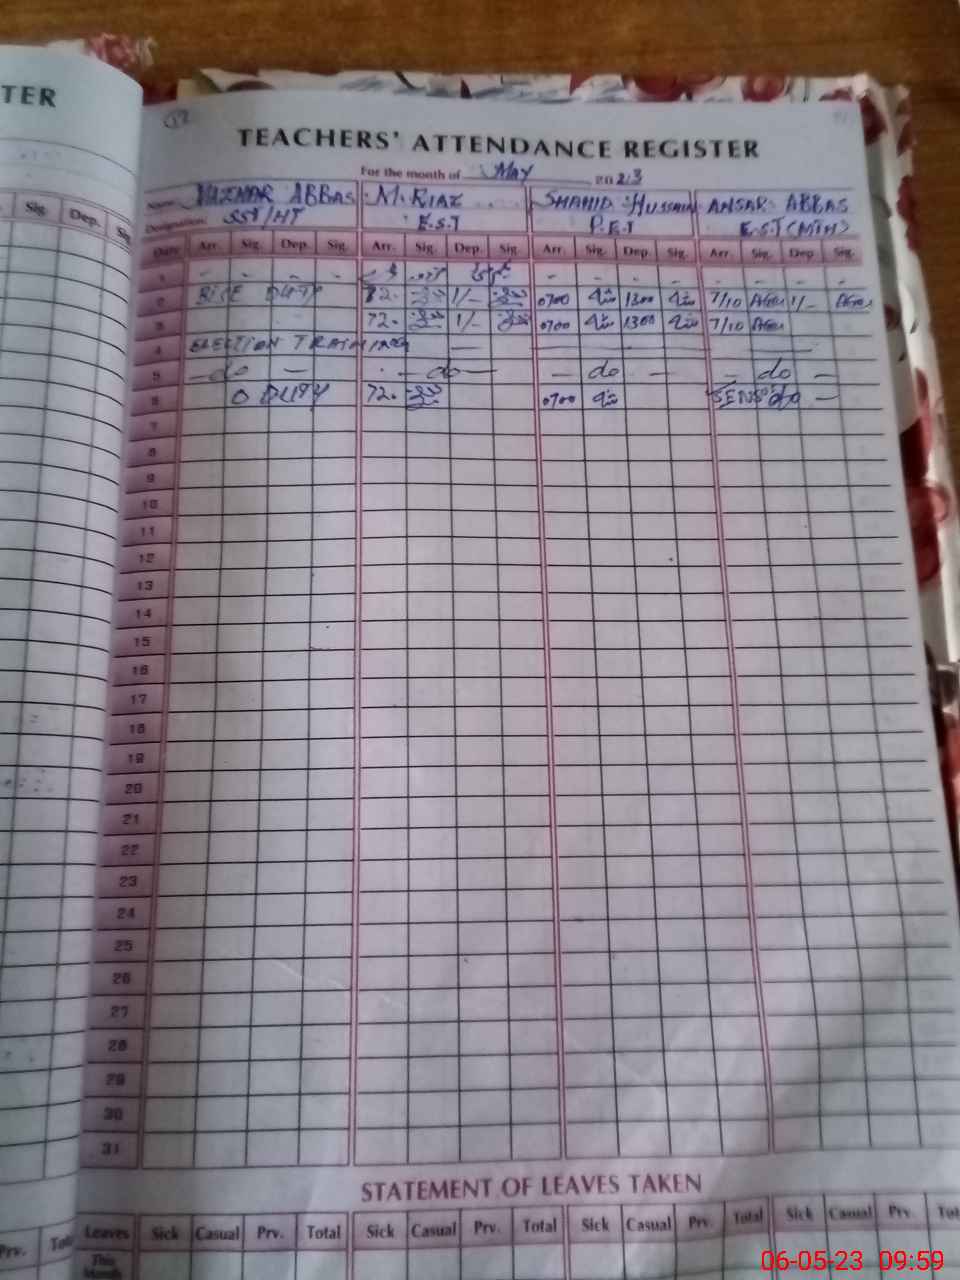 TER
52
TEACHERS' ATTENDANCE REGISTER
For the month of MAY 2023
Name: ABBAS M. RIAZ SHAHID HUSSAIN ANSAR ABBAS
Designation: SST/HT E.S.T P.E.T E.S.T (MTH)
Sig. Dep. Sig
Date Arr. Sig. Dep. Sig. Arr. Sig. Dep. Sig. Arr. Sig. Dep. Sig. Arr. Sig. Dep. Sig.
1 - - - - - - - - - - - -
2 BISE DUTY 72. 1/- 0700 1300 7/10 1/-
3 72. 1/- 0700 1300 7/10
4 ELECTION TRAINING
5 — do — — do — — do — — do —
6 DUTY 72. 0700
7
8
9
10
11
12
13
14
15
16
17
18
19
20
21
22
23
24
25
26
27
28
29
30
31
STATEMENT OF LEAVES TAKEN
Prv. Tot
Leaves Sick Casual Prv. Total Sick Casual Prv. Total Sick Casual Prv. Total Sick Casual Prv. Tot
This
Month
06-05-23 09:59